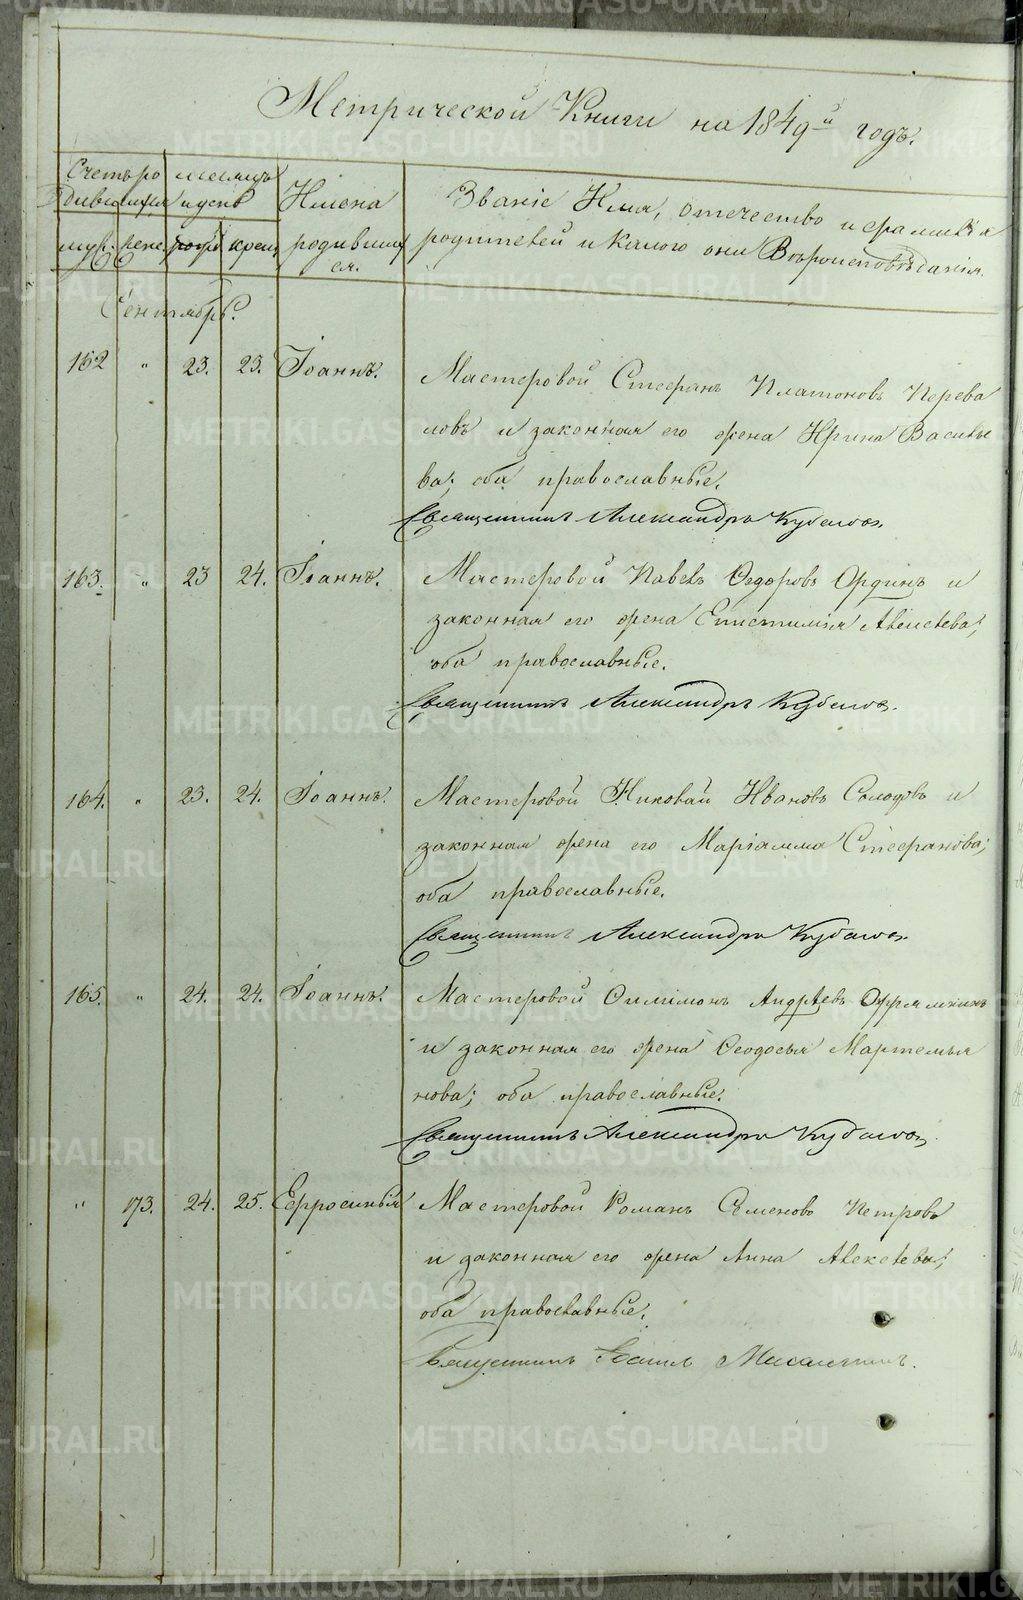 Метрической Книги на 1849й годъ.
Счетъ ро месяцъ Имена Званіе Имя, отечество и фамилія
дившихся и день родивших родителей и какого они Вѣроисповѣданія.
муж. жен. рожд крещ ся.
Сентябрь.
162 " 23. 23. Іоаннъ. Мастеровой Стефанъ Платоновъ Перева
ловъ и законная его жена Ирина Василье
ва; оба православные.
Священникъ Александръ
163. " 23 24. Іоаннъ. Мастеровой Павелъ Ѳедоровъ Ординъ и
законная его жена Епистимія Алексѣева;
оба православные.
Священникъ Александръ
164. " 23. 24. Іоаннъ. Мастеровой Николай Ивановъ Солодовъ и
законная жена его Маріамма Стефанова;
оба православные.
Священникъ Александръ
165. " 24. 24. Іоаннъ. Мастеровой Филимонъ Андрѣевъ
и законная его жена Ѳеодосья Мартемья
нова; оба православные.
Священникъ Александръ
" 173. 24. 25. Ефросинья Мастеровой Романъ Семеновъ Петровъ
и законная его жена Анна Алексѣева;
оба православные.
Священникъ
METRIKI.GASO-URAL.RU